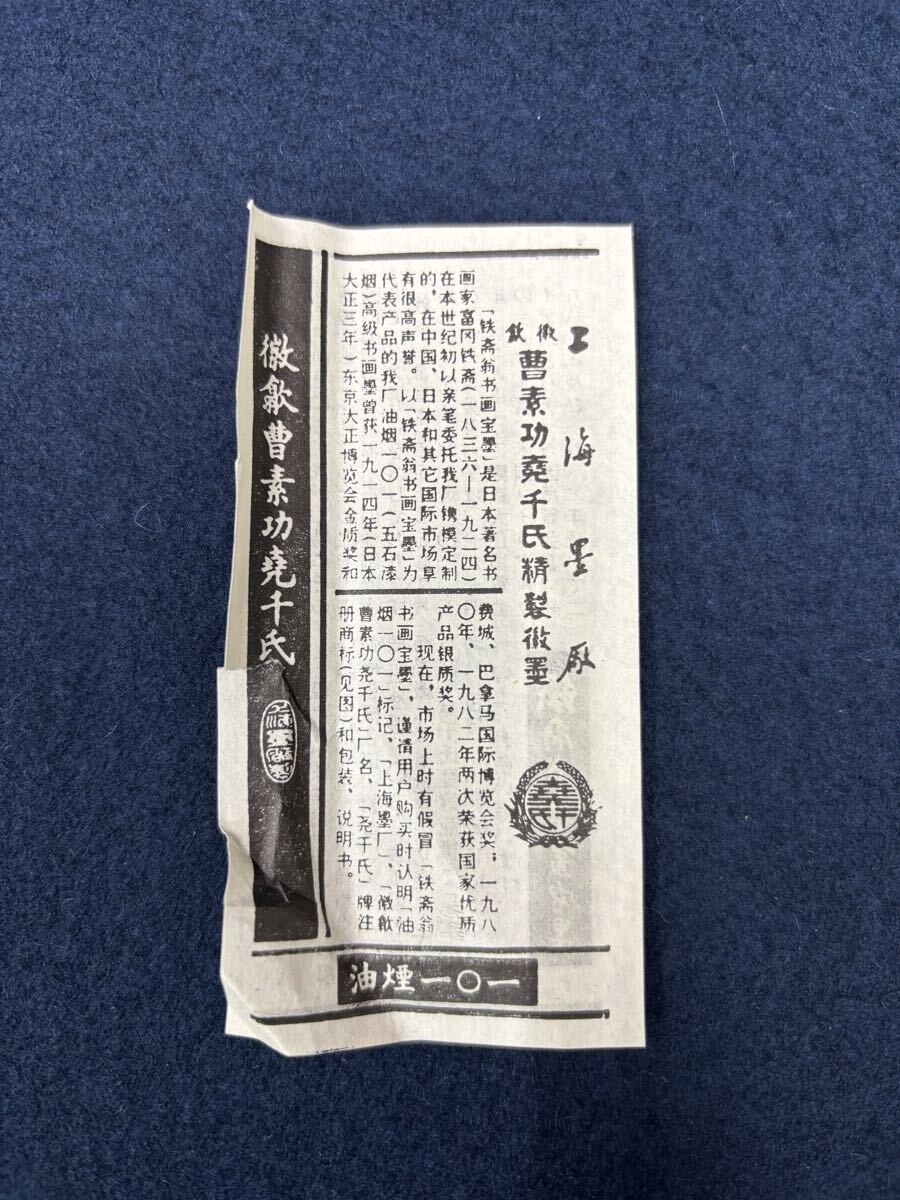 上海墨厰
徽歙
曹素功堯千氏精製徽墨
堯千氏
「铁斋翁书画宝墨」是日本著名书
画家富冈铁斋(一八三六—一九二四)
在本世纪初以亲笔委托我厂镌模定制
的，在中国、日本和其它国际市场享
有很高声誉。以「铁斋翁书画宝墨」为
代表产品的我厂油烟一〇一(五石漆
烟)高级书画墨曾获一九一四年(日本
大正三年)东京大正博览会金质奖和
费城、巴拿马国际博览会奖；一九八
〇年、一九八二年两次荣获国家优质
产品银质奖。
现在，市场上时有假冒「铁斋翁
书画宝墨」，谨请用户购买时认明「油
烟一〇一」标记、「上海墨厂」、「徽歙
曹素功尧千氏」厂名、「尧千氏」牌注
册商标(见图)和包装、说明书。
徽歙曹素功堯千氏
油煙一〇一